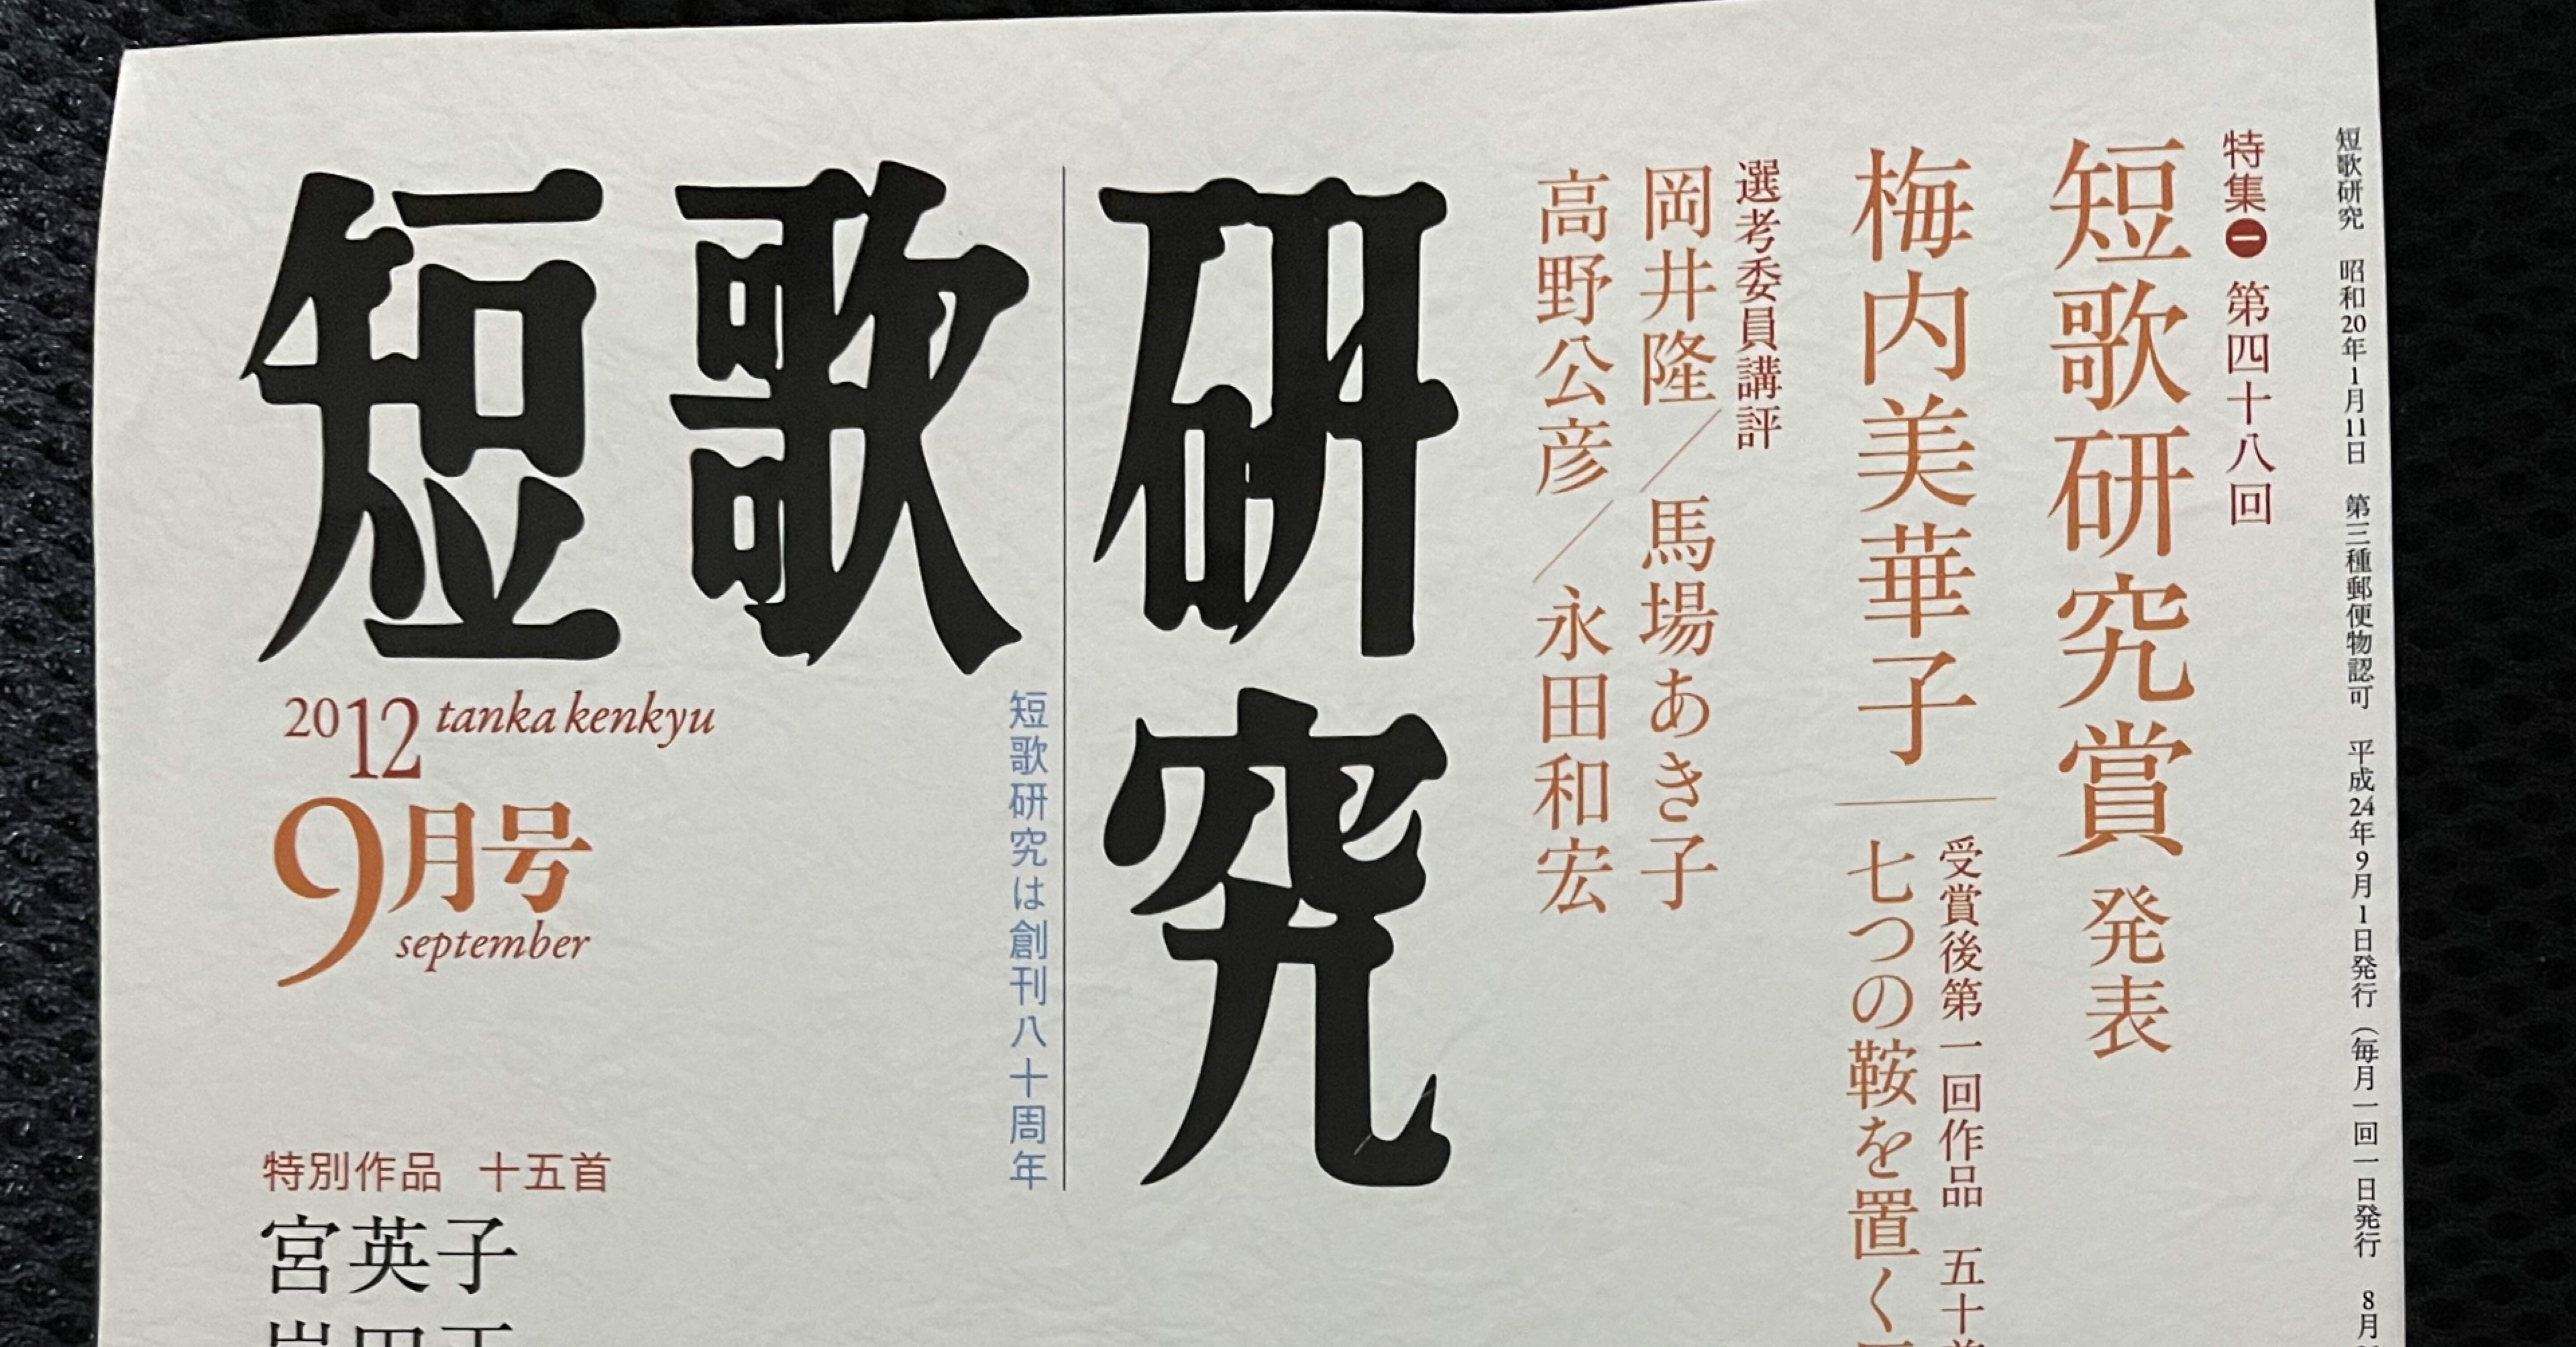 短歌研究　昭和20年1月11日　第三種郵便物認可　平成24年9月1日発行（毎月一回一日発行　8月
特集㊀　第四十八回
短歌研究賞 発表
梅内美華子
受賞後第一回作品　五十
七つの鞍を置く
選考委員講評
岡井隆／馬場あき子
高野公彦／永田和宏
短歌研究
短歌研究は創刊八十周年
2012 tanka kenkyu
9月号
september
特別作品　十五首
宮英子